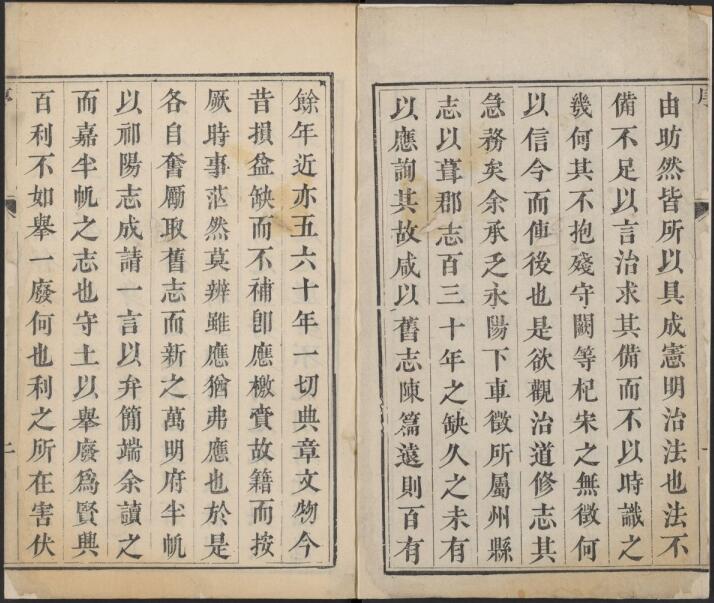 序
由昉然皆所以具成憲明治法也法不
備不足以言治求其備而不以時識之
幾何其不抱殘守闕等杞宋之無徵何
以信今而傳後也是欲觀治道修志其
急務矣余承乏永陽下車徵所屬州縣
志以葺郡志百三十年之缺久之未有
以應詢其故咸以舊志陳篇遠則百有
餘年近亦五六十年一切典章文物今
昔損益缺而不補卽應檄賫故籍而按
厥時事茫然莫辨雖應猶弗應也於是
各自奮勵取舊志而新之萬明府半帆
以祁陽志成請一言以弁簡端余讀之
而嘉半帆之志也守土以舉廢爲賢興
百利不如舉一廢何也利之所在害伏
序
二